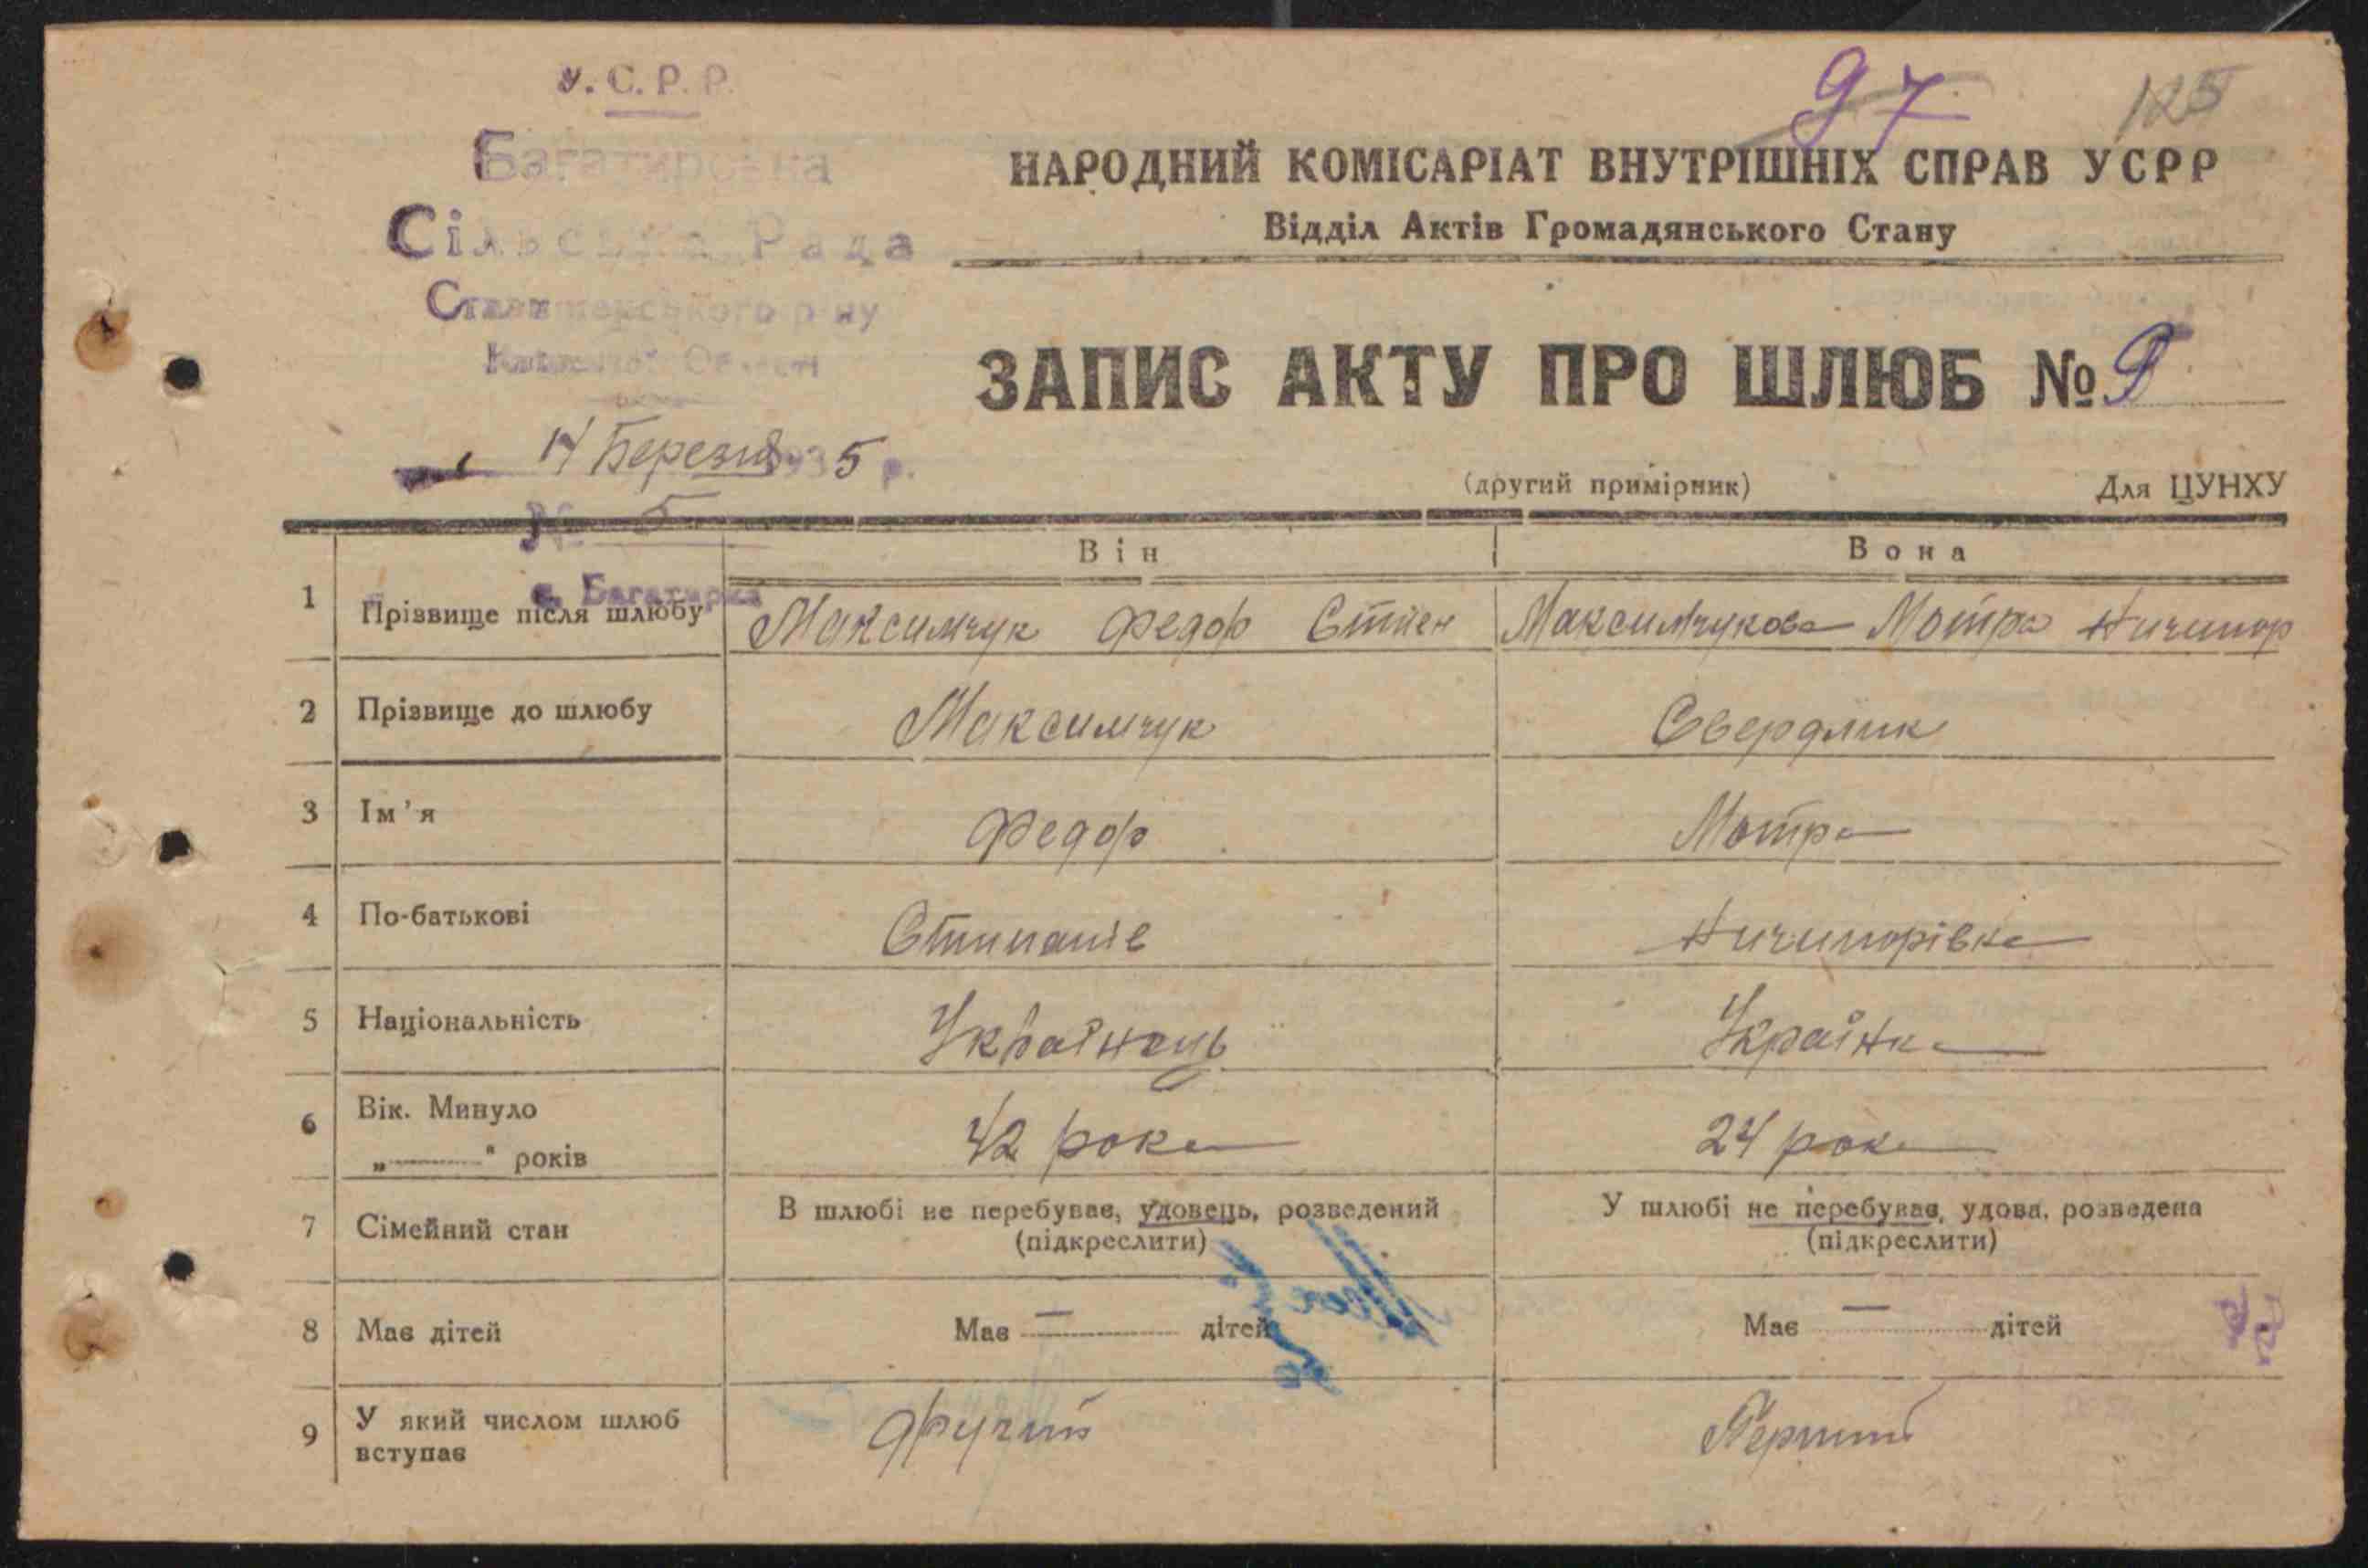 У.С.Р.Р.
Багатирська
Сільська Рада
Ставищенського р-ну
Київської Області
14 Березня 1935 р.
№ 5
с. Багатирка
97
125
НАРОДНИЙ КОМІСАРІАТ ВНУТРІШНІХ СПРАВ УСРР
Відділ Актів Громадянського Стану
ЗАПИС АКТУ ПРО ШЛЮБ №
(другий примірник) Для ЦУНХУ
Він Вона
1 Прізвище після шлюбу Максимчук Федор Максимчукова Мотра Ничипор
2 Прізвище до шлюбу Максимчук Свердлик
3 Ім'я Федор Мотра
4 По-батькові Стипанів Ничипорівна
5 Національність Українець Українка
6 Вік. Минуло
„———" років 42 рока 24 рока
7 Сімейний стан В шлюбі не перебуває, удовець, розведений У шлюбі не перебуває, удова, розведена
(підкреслити) (підкреслити)
8 Має дітей Має — дітей Має — дітей
9 У який числом шлюб
вступає другий Перший